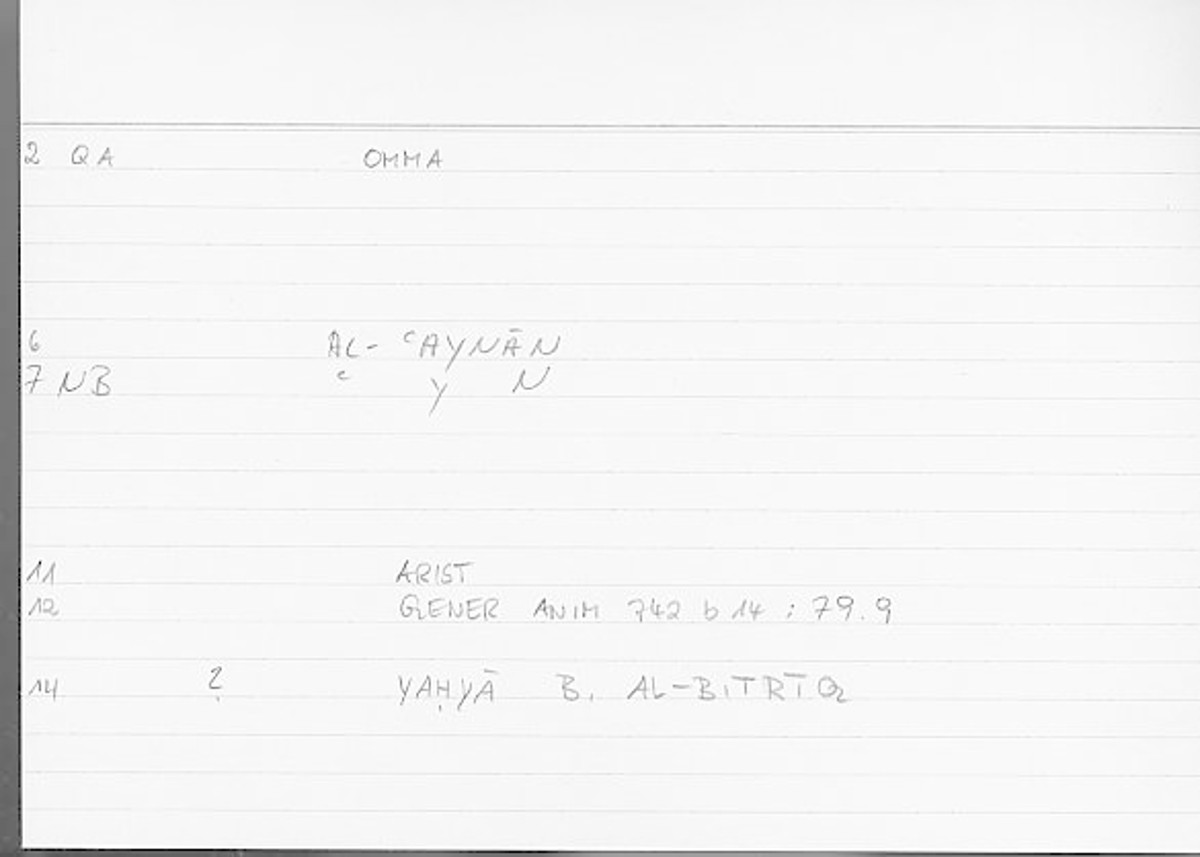 2 QA OMMA
6 AL- ʿAYNĀN
7 NB ʿ Y N
11 ARIST
12 GENER ANIM 742 b 14 : 79.9
14 ? YAḤYĀ B. AL-BITRĪQ